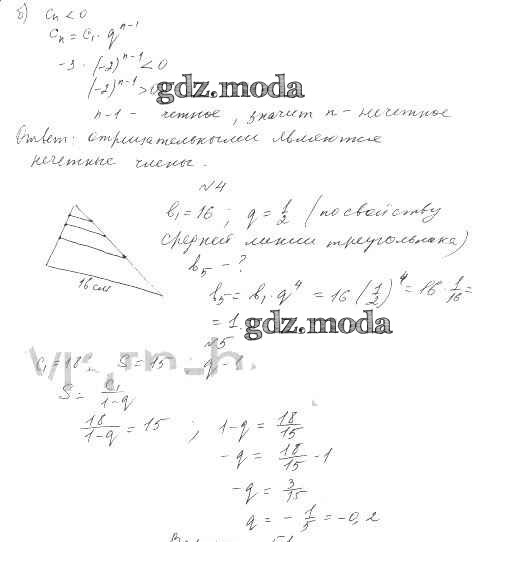 б) Cn < 0
Cn = C1 · q^n-1
-3 · (-2)^n-1 < 0
(-2)^n-1 > 0
gdz.moda
n-1 - четное, значит n - нечетное
Ответ: отрицательными являются
нечетные члены.
№4
b1 = 16 ; q = 1/2 (по свойству
средней линии треугольника)
b5 - ?
16 см
b5 = b1 · q^4 = 16 (1/2)^4 = 16 · 1/16 =
= 1.
gdz.moda
№5
C1 = 18 , S = 15 ; q - ?
S = C1/1-q
18/1-q = 15 ; 1-q = 18/15
-q = 18/15 - 1
-q = 3/15
q = - 1/5 = -0,2